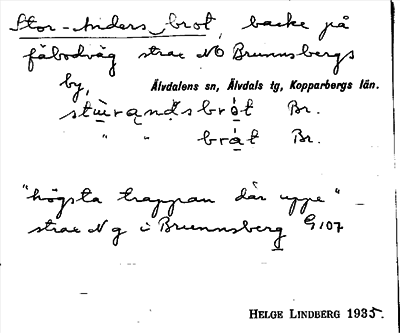 Stor-Anders brot, backe på
fäbodväg strax NO Brunnsbergs
by,
Älvdalens sn, Älvdals tg, Kopparbergs län.
Br.
" " Br.
"högsta trappan där uppe"
strax N g i Brunnsberg G 107
HELGE LINDBERG 1935.